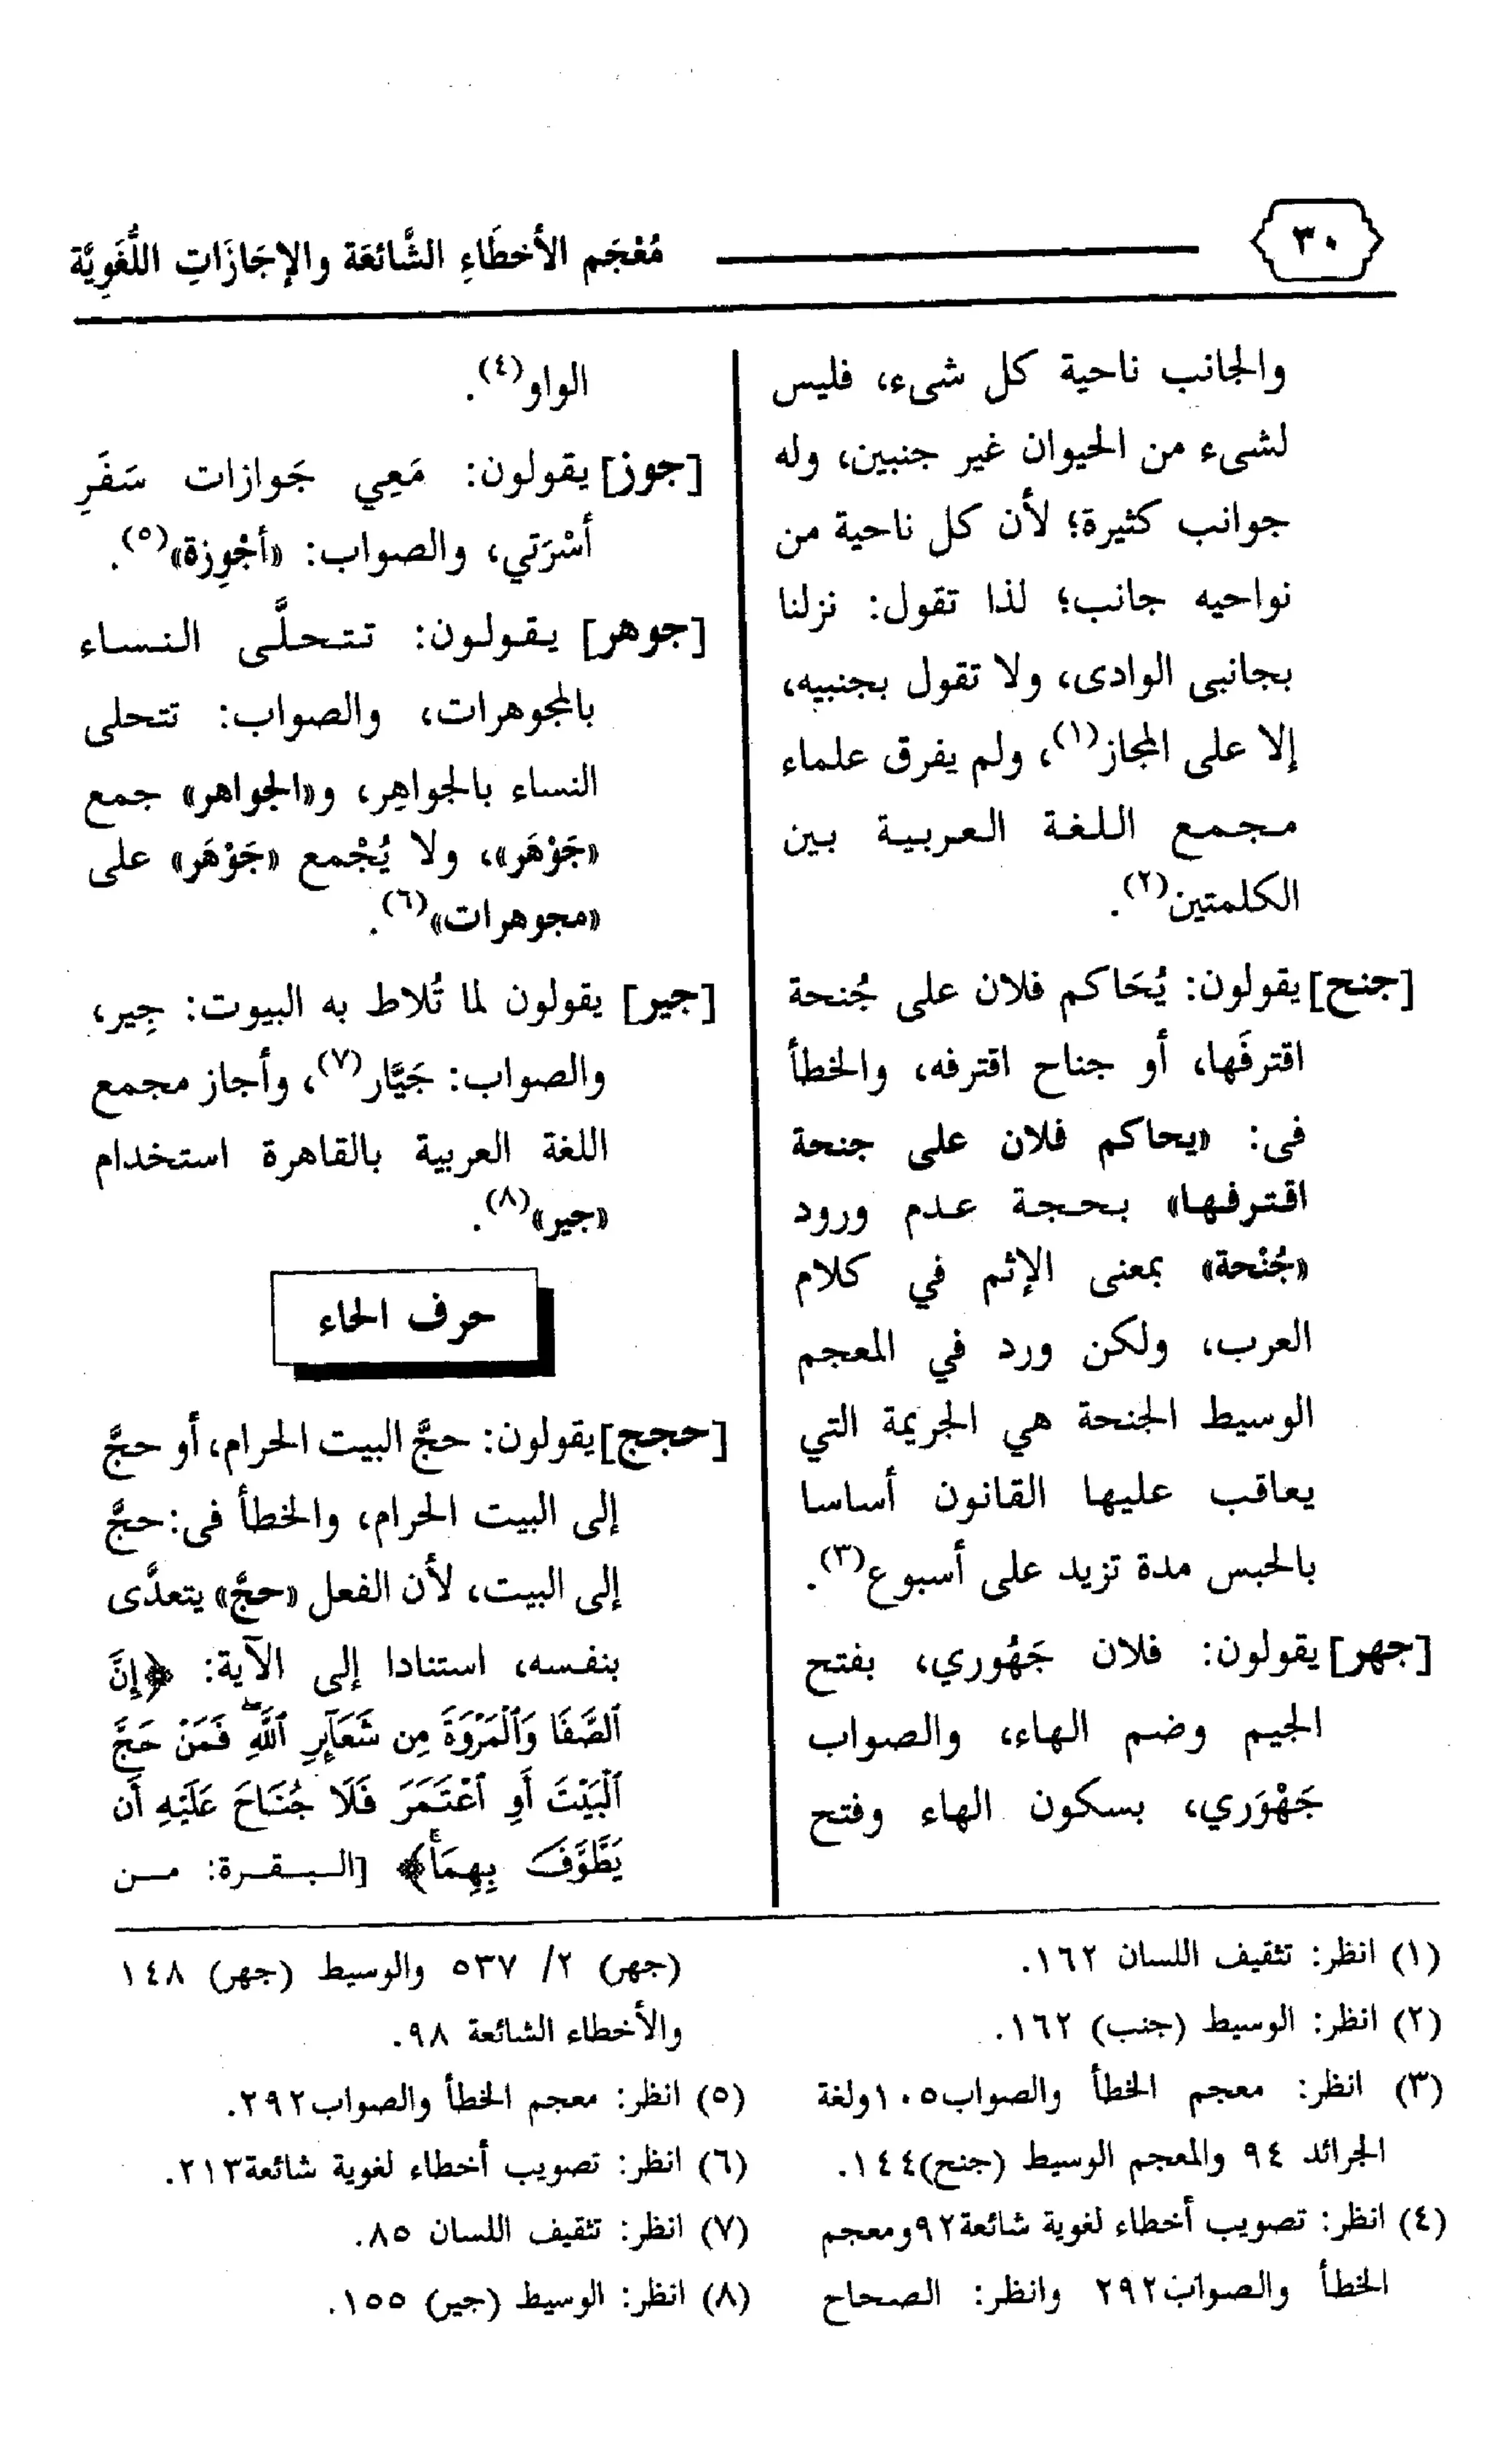 ٣٠
مُعْجَم الأخطَاءِ الشَّائعَة والإجَازَاتِ اللُّغَوِيَّة
والجانب ناحية كل شىء، فليس
لشىء من الحيوان غير جنبين، وله
جوانب كثيرة؛ لأن كل ناحية من
نواحيه جانب؛ لذا تقول: نزلنا
بجانبى الوادى، ولا تقول بجنبيه،
إلا على المجاز(١)، ولم يفرق علماء
مجمع اللغة العربية بين
الكلمتين(٢).
[جنح] يقولون: يُحَاكم فلان على جُنحة
اقترفَها، أو جناح اقترفه، والخطأ
فى: «يحاكم فلان على جنحة
اقترفها» بحجة عدم ورود
«جُنْحة» بمعنى الإثم في كلام
العرب، ولكن ورد في المعجم
الوسيط الجنحة هي الجريمة التي
يعاقب عليها القانون أساسا
بالحبس مدة تزيد على أسبوع(٣).
[جهر] يقولون: فلان جَهُوري، بفتح
الجيم وضم الهاء، والصواب
جَهْوَري، بسكون الهاء وفتح
الواو(٤).
[جوز] يقولون: مَعِي جَوازات سَفَرِ
أسْرَتي، والصواب: «أجْوِزة»(٥).
[جوهر] يقولون: تتحلَّى النساء
بالمجوهرات، والصواب: تتحلى
النساء بالجواهِر، و«الجواهر» جمع
«جَوْهَر»، ولا يُجْمع «جَوْهَر» على
«مجوهرات»(٦).
[جير] يقولون لما تُلاط به البيوت: جِير،
والصواب: جَيَّار(٧)، وأجاز مجمع
اللغة العربية بالقاهرة استخدام
«جير»(٨).
حرف الحاء
[حجج] يقولون: حجَّ البيت الحرام، أو حجَّ
إلى البيت الحرام، والخطأ فى: حجَّ
إلى البيت، لأن الفعل «حجَّ» يتعدَّى
بنفسه، استنادا إلى الآية: ﴿إِنَّ
ٱلصَّفَا وَٱلْمَرْوَةَ مِن شَعَآئِرِ ٱللَّهِۖ فَمَنْ حَجَّ
ٱلْبَيْتَ أَوِ ٱعْتَمَرَ فَلَا جُنَاحَ عَلَيْهِ أَن
يَطَّوَّفَ بِهِمَاۚ﴾ [البقرة: من
(١) انظر: تثقيف اللسان ١٦٢.
(٢) انظر: الوسيط (جنب) ١٦٢.
(٣) انظر: معجم الخطأ والصواب١٠٥ولغة
الجرائد ٩٤ والمعجم الوسيط (جنح)١٤٤.
(٤) انظر: تصويب أخطاء لغوية شائعة٩٢ومعجم
الخطأ والصواب٢٩٢ وانظر: الصحاح
(جهر) ٢/ ٥٣٧ والوسيط (جهر) ١٤٨
والأخطاء الشائعة ٩٨.
(٥) انظر: معجم الخطأ والصواب٢٩٢.
(٦) انظر: تصويب أخطاء لغوية شائعة٢١٣.
(٧) انظر: تثقيف اللسان ٨٥.
(٨) انظر: الوسيط (جير) ١٥٥.